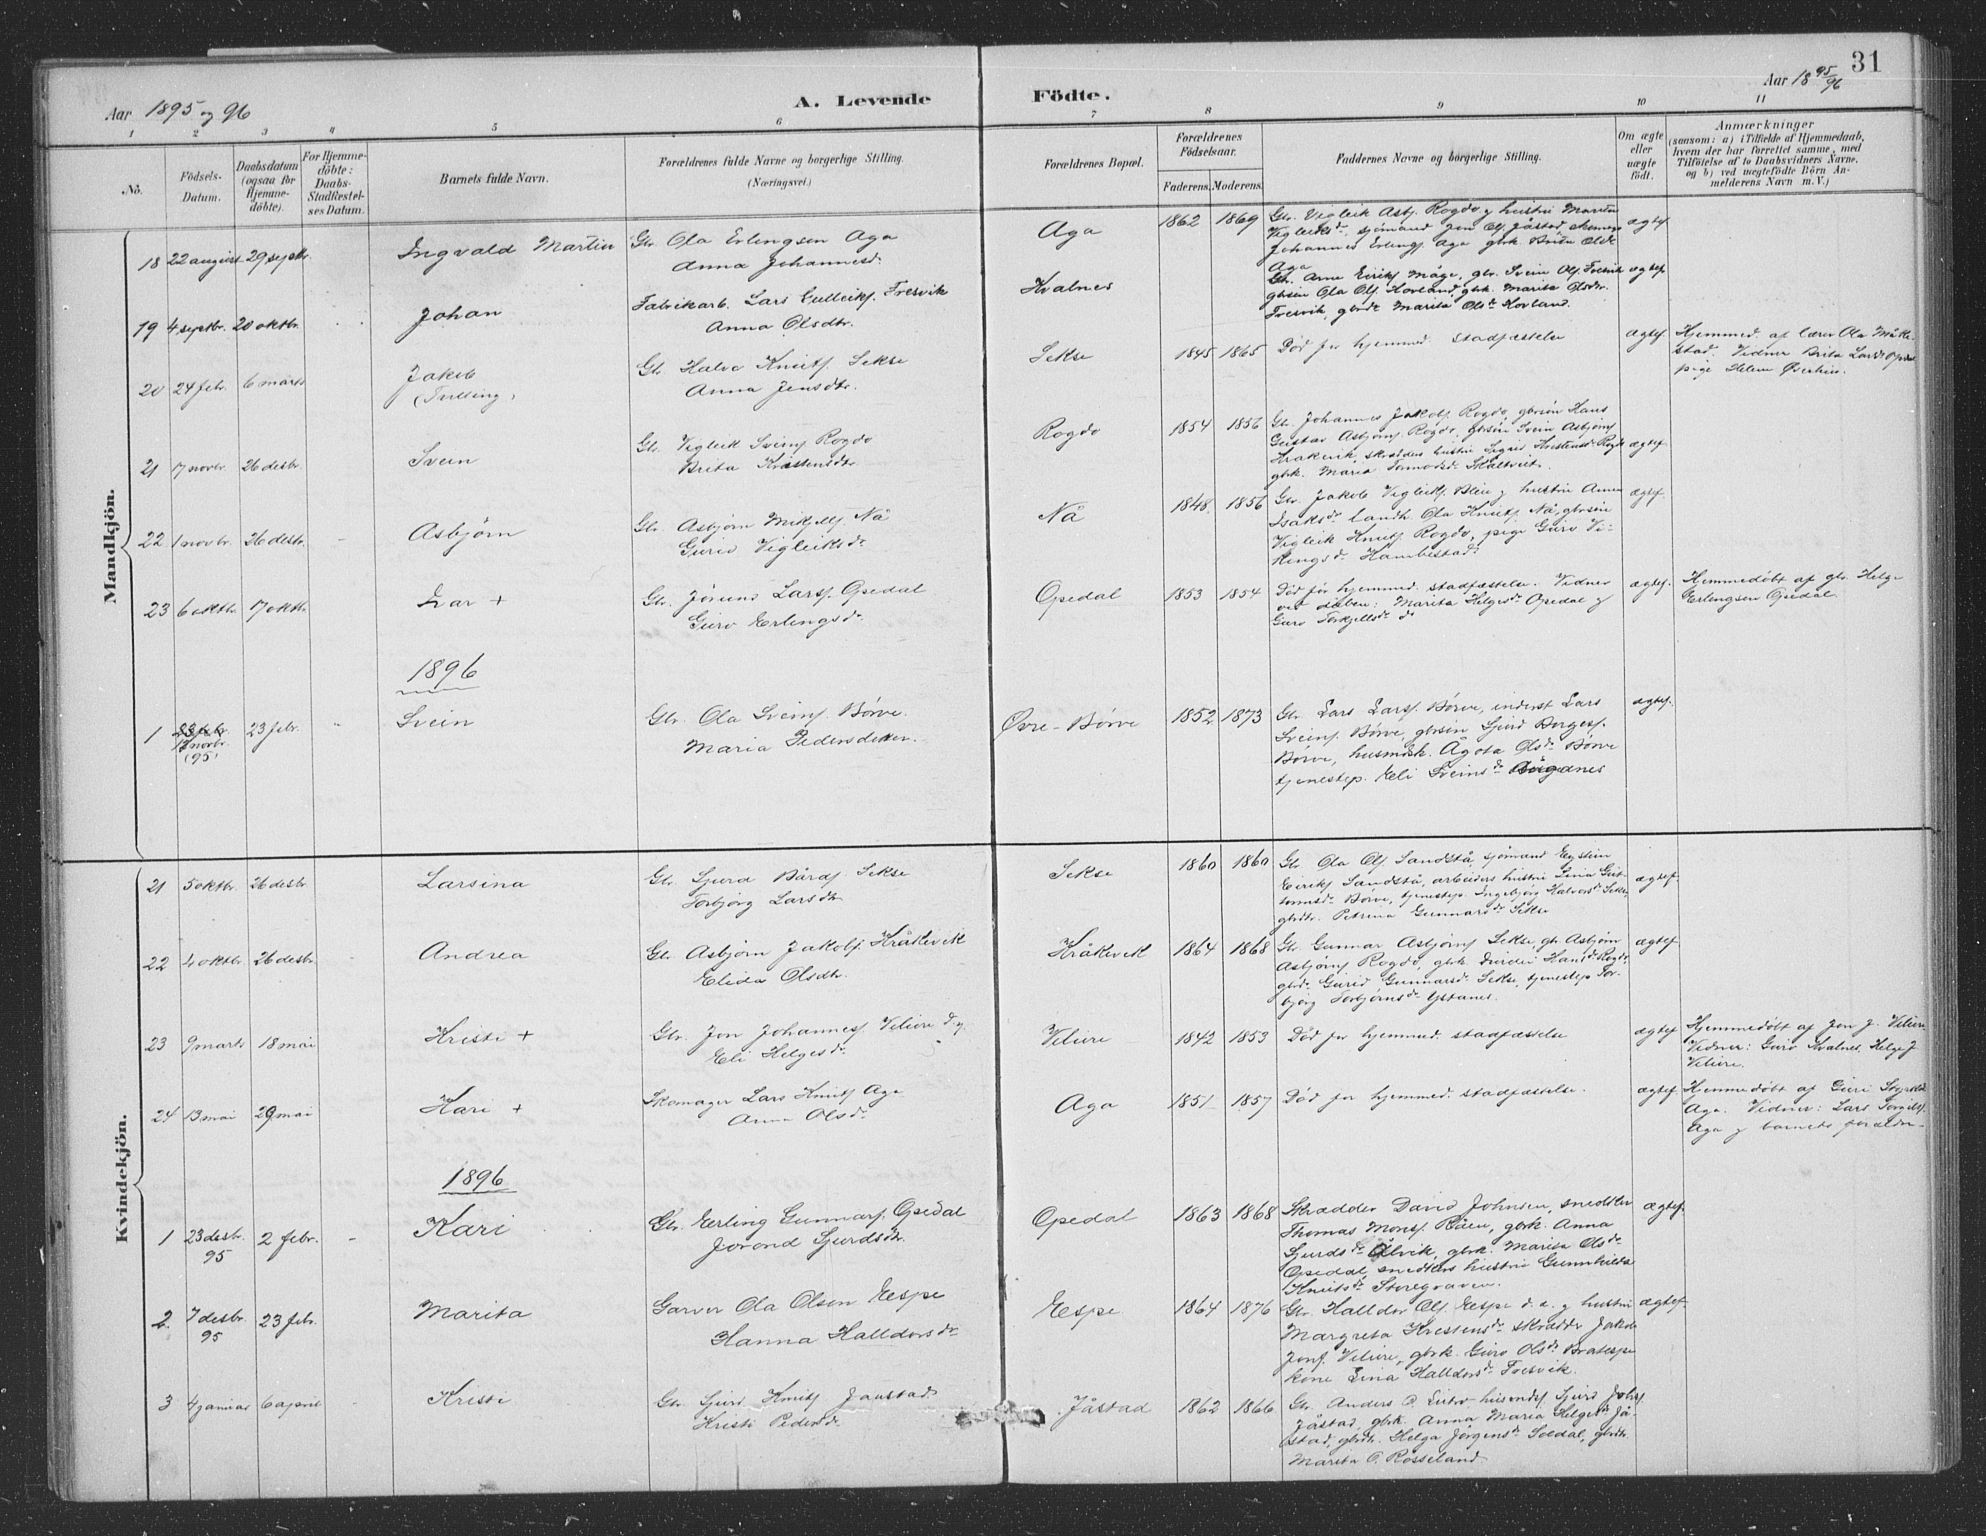 31
Aar 1895 og 96
A. Levende Födte.
Aar 18 95/96
1 2 3 4 5 6 7 8 9 10 11
No.
Födsels-Datum.
Daabsdatum (ogsaa for Hjemme-döbte).
For Hjemme-döbte: Daabs-Stadfæstel-ses Datum.
Barnets fulde Navn.
Forældrenes fulde Navne og borgerlige Stilling.
(Næringsvei.)
Forældrenes Bopæl.
Forældrenes Födselsaar.
Faderens. Moderens.
Faddernes Navne og borgerlige Stilling.
Om ægte eller uægte födt.
Anmærkninger
(saasom: a) i Tilfælde af Hjemmedaab, hvem der har forrettet samme, med Tilföielse af to Daabsvidners Navne. og b) ved uægtefödte Börn Anmelderens Navn m. V.)
Mandkjön.
18 22 august 29 septbr. Ingvald Martin Gbr. Ola Erlingsen Aga
Anna Johannesdr. Aga 1862 1869 Gbr. Vigleik Asbj. Rogdo og hustru Marita
Vigleiksdr., sjømand Jon Olsf. Jåstad,
Johannes Erlingsf. Aga gbrk. Brita Olsdr.
Aga ægtef.
19 4 septbr. 20 oktbr. Johan Fabrikarb. Lars Gulleiksf. Tresvik
Anna Olsdtr. Kvalnes Gbr. Arne Eiriksf. Måge, gbr. Svein Olsf. Tresvik
gbrsøn Ola Olsf. Hovland, gbrk. Marita Olsdr.
Tresvik, gbrdr. Marita Olsdr. Hovland. ægtef.
20 24 febr. 6 marts Jakob
(Tvilling) Gbr. Halvo Knutsf. Sekse
Anna Jensdtr. Sekse 1845 1865 Død før hjemmed. stadfæstelse ægtef. Hjemmed. af lærer Ola Måke-
stad. Vidner Brita Larsdr.
pige Helene
21 17 novbr. 26 desbr. Svein Gbr. Vigleik Sveinsf. Rogdo
Brita Kristensdtr. Rogdo 1854 1856 Gbr. Johannes Jakobsf. Rogdo, gbrsøn Hans
Gustav Asbjørnsf. Rogdo, gbrsøn Svein Asbjørnsf.
Kråkevik, skrædders hustru Sigrid Kristensdr. Rogdo
gbrk. Maria Tormodsdr. Skåltveit. ægtef.
22 1 novbr. 26 desbr. Asbjørn Gbr. Asbjørn Mikjelsf. Nå
Gurid Vigleiksdr. Nå 1848 1856 Gbr. Jakob Vigleiksf. Bleie og hustru Anna
Isaksdr. landh. Ola Knutsf. Nå, gbrsøn
Vigleik Knutsf. Rogdo, pige Guro Vi-
kingsdr. Hambrestad. ægtef.
23 6 oktbr. 7 oktbr. Ivar + Gbr. Jørund Larsf. Opedal
Guro Erlingsdr. Opedal 1853 1854 Død før hjemmed. stadfæstelse. Vidner
ved dåben: Marita Helgesdr. Opedal og
Guro Torkjellsdr. do ægtef. Hjemmedøbt af gbr. Helge
Erlingsen Opedal.
1896
1 13 novbr. (95) 23 febr. Svein Gbr. Ola Sveinsf. Børve.
Maria Pedersdatter. Øvre-Børve 1852 1873 Gbr. Lars Larsf. Børve, inderst Lars
Sveinsf. Børve, gbrsøn Sjurd Borgesf.
Børve, husmdsk. Ågota Olsdr. Børve
tjenestep. Eli Sveinsdr. ægtef.
Kvindekjön.
21 5 oktbr. 26 desbr. Larsina Gbr. Sjurd Bårdsf. Sekse
Torbjørg Larsdtr. Sekse 1860 1860 Gbr. Ola Olsf. Sandstå, sjømand Eystein
Eiriksf. Sandstå, arbeiders hustru Lina Gut-
tormsdr. Børve, tjenestep. Ingebjørg Halvorsdr. Sekse,
gbrdtr. Petrina Gunnarsdr. Sekse ægtef.
22 4 oktbr. 26 desbr. Andrea Gbr. Asbjørn Jakobsf. Kråkevik
Elida Olsdtr. Kråkevik 1864 1868 Gbr. Gunnar Asbjørnsf. Sekse, gbr. Asbjørn
Asbjørnsf. Rogdo, gbrk. Hansdr. Rogdo
gbrdr. Gurid Gunnarsdr. Sekse, tjenestep. Tor-
bjørg Torbjørnsdr. Ystanes. ægtef.
23 9 marts 18 mai Kristi + Gbr. Jon Johannesf. Velure d.y.
Eli Helgesdr. Velure 1842 1853 Død før hjemmed. stadfæstelse ægtef. Hjemmedøbt af Jon J. Velure
Vidner: Guro Kvalnes, Helge J.
Velure.
24 13 mai 29 mai Kari + Skomager Lars Knutsf. Aga
Anna Olsdr. Aga 1851 1857 Død før hjemmed. stadfæstelse. ægtef. Hjemmedøbt af Guri
Aga. Vidner: Lars Torgilsf.
Aga og barnets forældre.
1896
1 23 desbr. 95 2 febr. Kari Gbr. Erling Gunnarsf. Opedal
Jorond Sjurdsdtr. Opedal 1863 1868 Skrædder David Johnsen, snedker
Thomas Monsf. Røen, gbrk. Anna
Sjurdsdr. Ålvik, gbrk. Marita Olsdr.
Opedal, snedkers hustru Gunnhilda
Knutsdr. Storegraven. ægtef.
2. 7 desbr. 95 23 febr. Marita Garver Ola Olsen Espe
Hanna Halldorsdr. Espe 1864 1876 Gbr. Halldor Olsf. Espe d.e. og hustru
Margreta Kristensdr. skrædder Jakob
Jonsf. Velure, gbrk. Guro Olsdr. Bratespe
kone Lina Halldorsdr. Tresvik. ægtef.
3 4 januar 6 april Kristi Gbr. Sjurd Knutsf. Jaastad
Kristi Pedersdr. Jåstad 1862 1866 Gbr. Anders P. husmdsf. Sjurd Johsf.
Jåstad, gbrk. Anna Maria Helgesdr. Jå-
stad, gbrdr. Helga Jørgensdr. Soldal, gbrdtr.
Marita O. Røsseland.